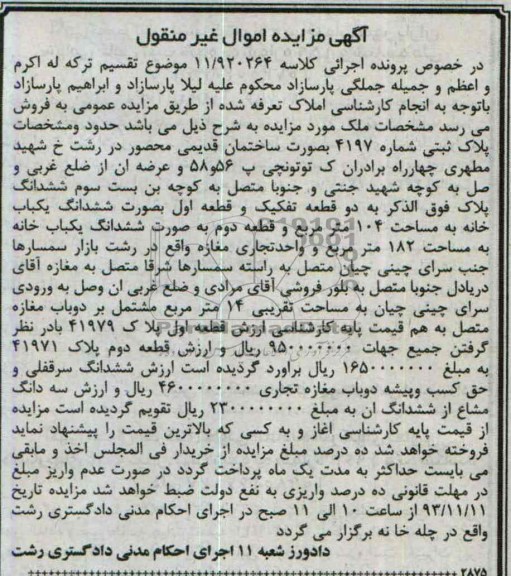 آگهی مزایده اموال غیر منقول
در خصوص پرونده اجرائی کلاسه ۱۱/۹۲۰۲۶۴ موضوع تقسیم ترکه له اکرم
و اعظم و جمیله جملگی پارسازاد محکوم علیه لیلا پارسازاد و ابراهیم پارسازاد
باتوجه به انجام کارشناسی املاک تعرفه شده از طریق مزایده عمومی به فروش
می رسد مشخصات ملک مورد مزایده به شرح ذیل می باشد حدود ومشخصات
پلاک ثبتی شماره ۴۱۹۷ بصورت ساختمان قدیمی محصور در رشت خ شهید
مطهری چهارراه برادران ک توتونچی پ ۵۶و۵۸ و عرضه ان از ضلع غربی و
صل به کوچه شهید جنتی و جنوبا متصل به کوچه بن بست سوم ششدانگ
پلاک فوق الذکر به دو قطعه تفکیک و قطعه اول بصورت ششدانگ یکباب
خانه به مساحت ۱۰۴ متر مربع و قطعه دوم به صورت ششدانگ یکباب خانه
به مساحت ۱۸۲ متر مربع و واحدتجاری مغازه واقع در رشت بازار سمسارها
جنب سرای چینی چیان متصل به راسته سمسارها شرقا متصل به مغازه آقای
دریادل جنوبا متصل به بلور فروشی آقای مرادی و ضلع غربی ان وصل به ورودی
سرای چینی چیان به مساحت تقریبی ۱۴ متر مربع مشتمل بر دوباب مغازه
متصل به هم قیمت پایه کارشناسی ارزش قطعه اول پلا ک ۴۱۹۷۹ بادر نظر
گرفتن جمیع جهات ۹۵۰۰۰۰۰۰۰ ریال و ارزش قطعه دوم پلاک ۴۱۹۷۱
به مبلغ ۱۶۵۰۰۰۰۰۰۰ ریال براورد گردیده است ارزش ششدانگ سرقفلی و
حق کسب وپیشه دوباب مغازه تجاری ۴۶۰۰۰۰۰۰۰۰ ریال و ارزش سه دانگ
مشاع از ششدانگ ان به مبلغ ۲۳۰۰۰۰۰۰۰۰ ریال تقویم گردیده است مزایده
از قیمت پایه کارشناسی اغاز و به کسی که بالاترین قیمت را پیشنهاد نماید
فروخته خواهد شد ده درصد مبلغ مزایده از خریدار فی المجلس اخذ و مابقی
می بایست حداکثر به مدت یک ماه پرداخت گردد در صورت عدم واریز مبلغ
در مهلت قانونی ده درصد واریزی به نفع دولت ضبط خواهد شد مزایده تاریخ
۹۳/۱۱/۱۱ از ساعت ۱۰ الی ۱۱ صبح در اجرای احکام مدنی دادگستری رشت
واقع در چله خا نه برگزار می گردد
دادورز شعبه ۱۱ اجرای احکام مدنی دادگستری رشت
۲۸۷۵